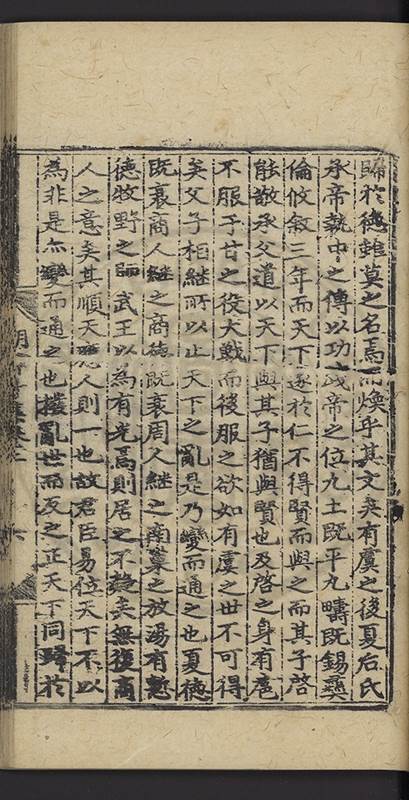 歸於德雖莫之名焉而煥乎其文矣有虞之後夏后氏
承帝執中之傳以功代帝之位九土既平九疇既錫彝
倫攸敘三年而天下遂於仁不得賢而與之而其子啓
能敬承父道以天下與其子猶與賢也及啓之身有扈
不服于甘之役大戰而後服之欲如有虞之世不可得
矣父子相繼所以止天下之亂是乃變而通之也夏德
既衰商人繼之商德既衰周人繼之南巢之放湯有慙
德牧野之師武王以為有光焉則居之不疑矣無復商
人之意矣其順天應人則一也故君臣易位天下不以
為非是亦變而通之也撥亂世而反之正天下同歸於
六